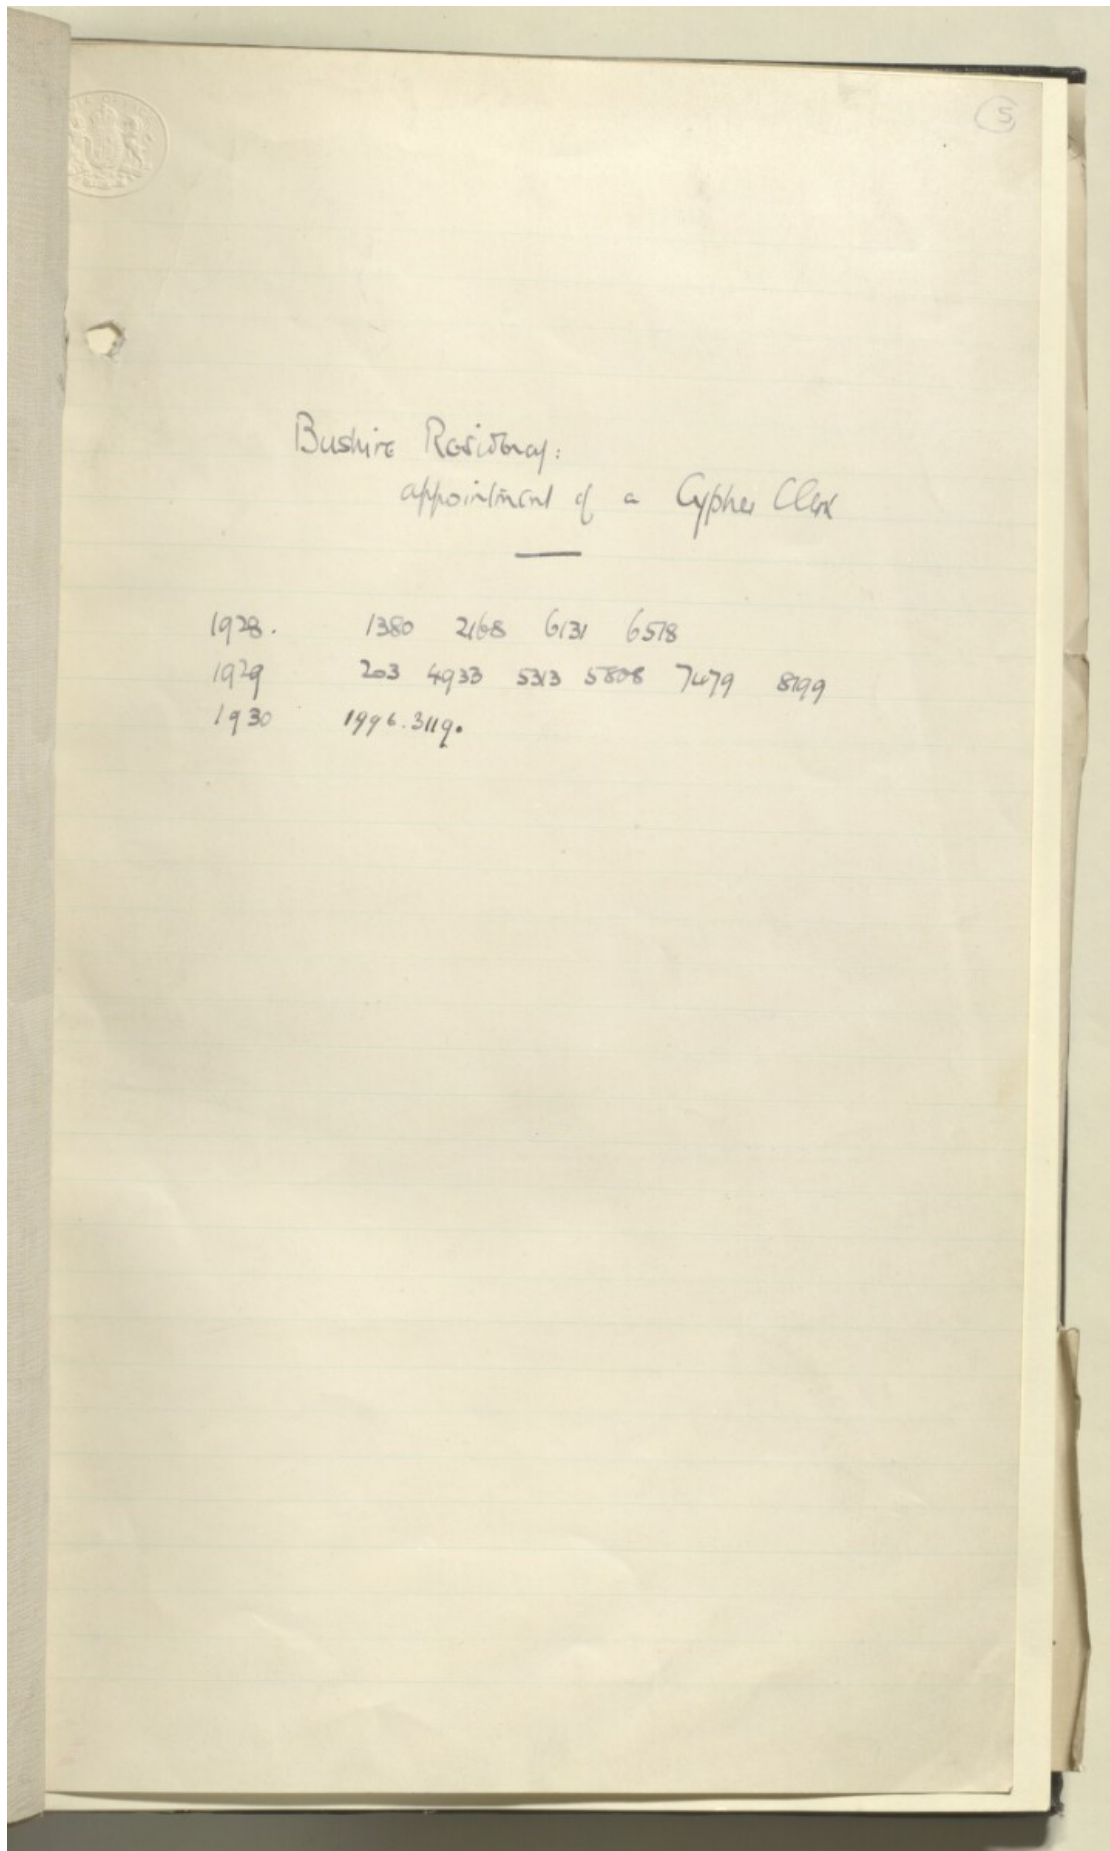 5
Bushire Residency:
appointment of a Cypher Clerk
1928. 1380 2168 6131 6518
1929 203 4933 5313 5808 7479 8199
1930 1996. 3119.